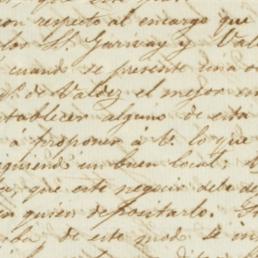 con respecto al encargo que
los Sr. Garivay y Val
cuando se presente una
Sr. de Valdez el mejor
establecer alguno de esta
á proponer á V. lo que
iguiendo un buen local:
que este negocio debe de
en quien depositarlo.
de este modo se in